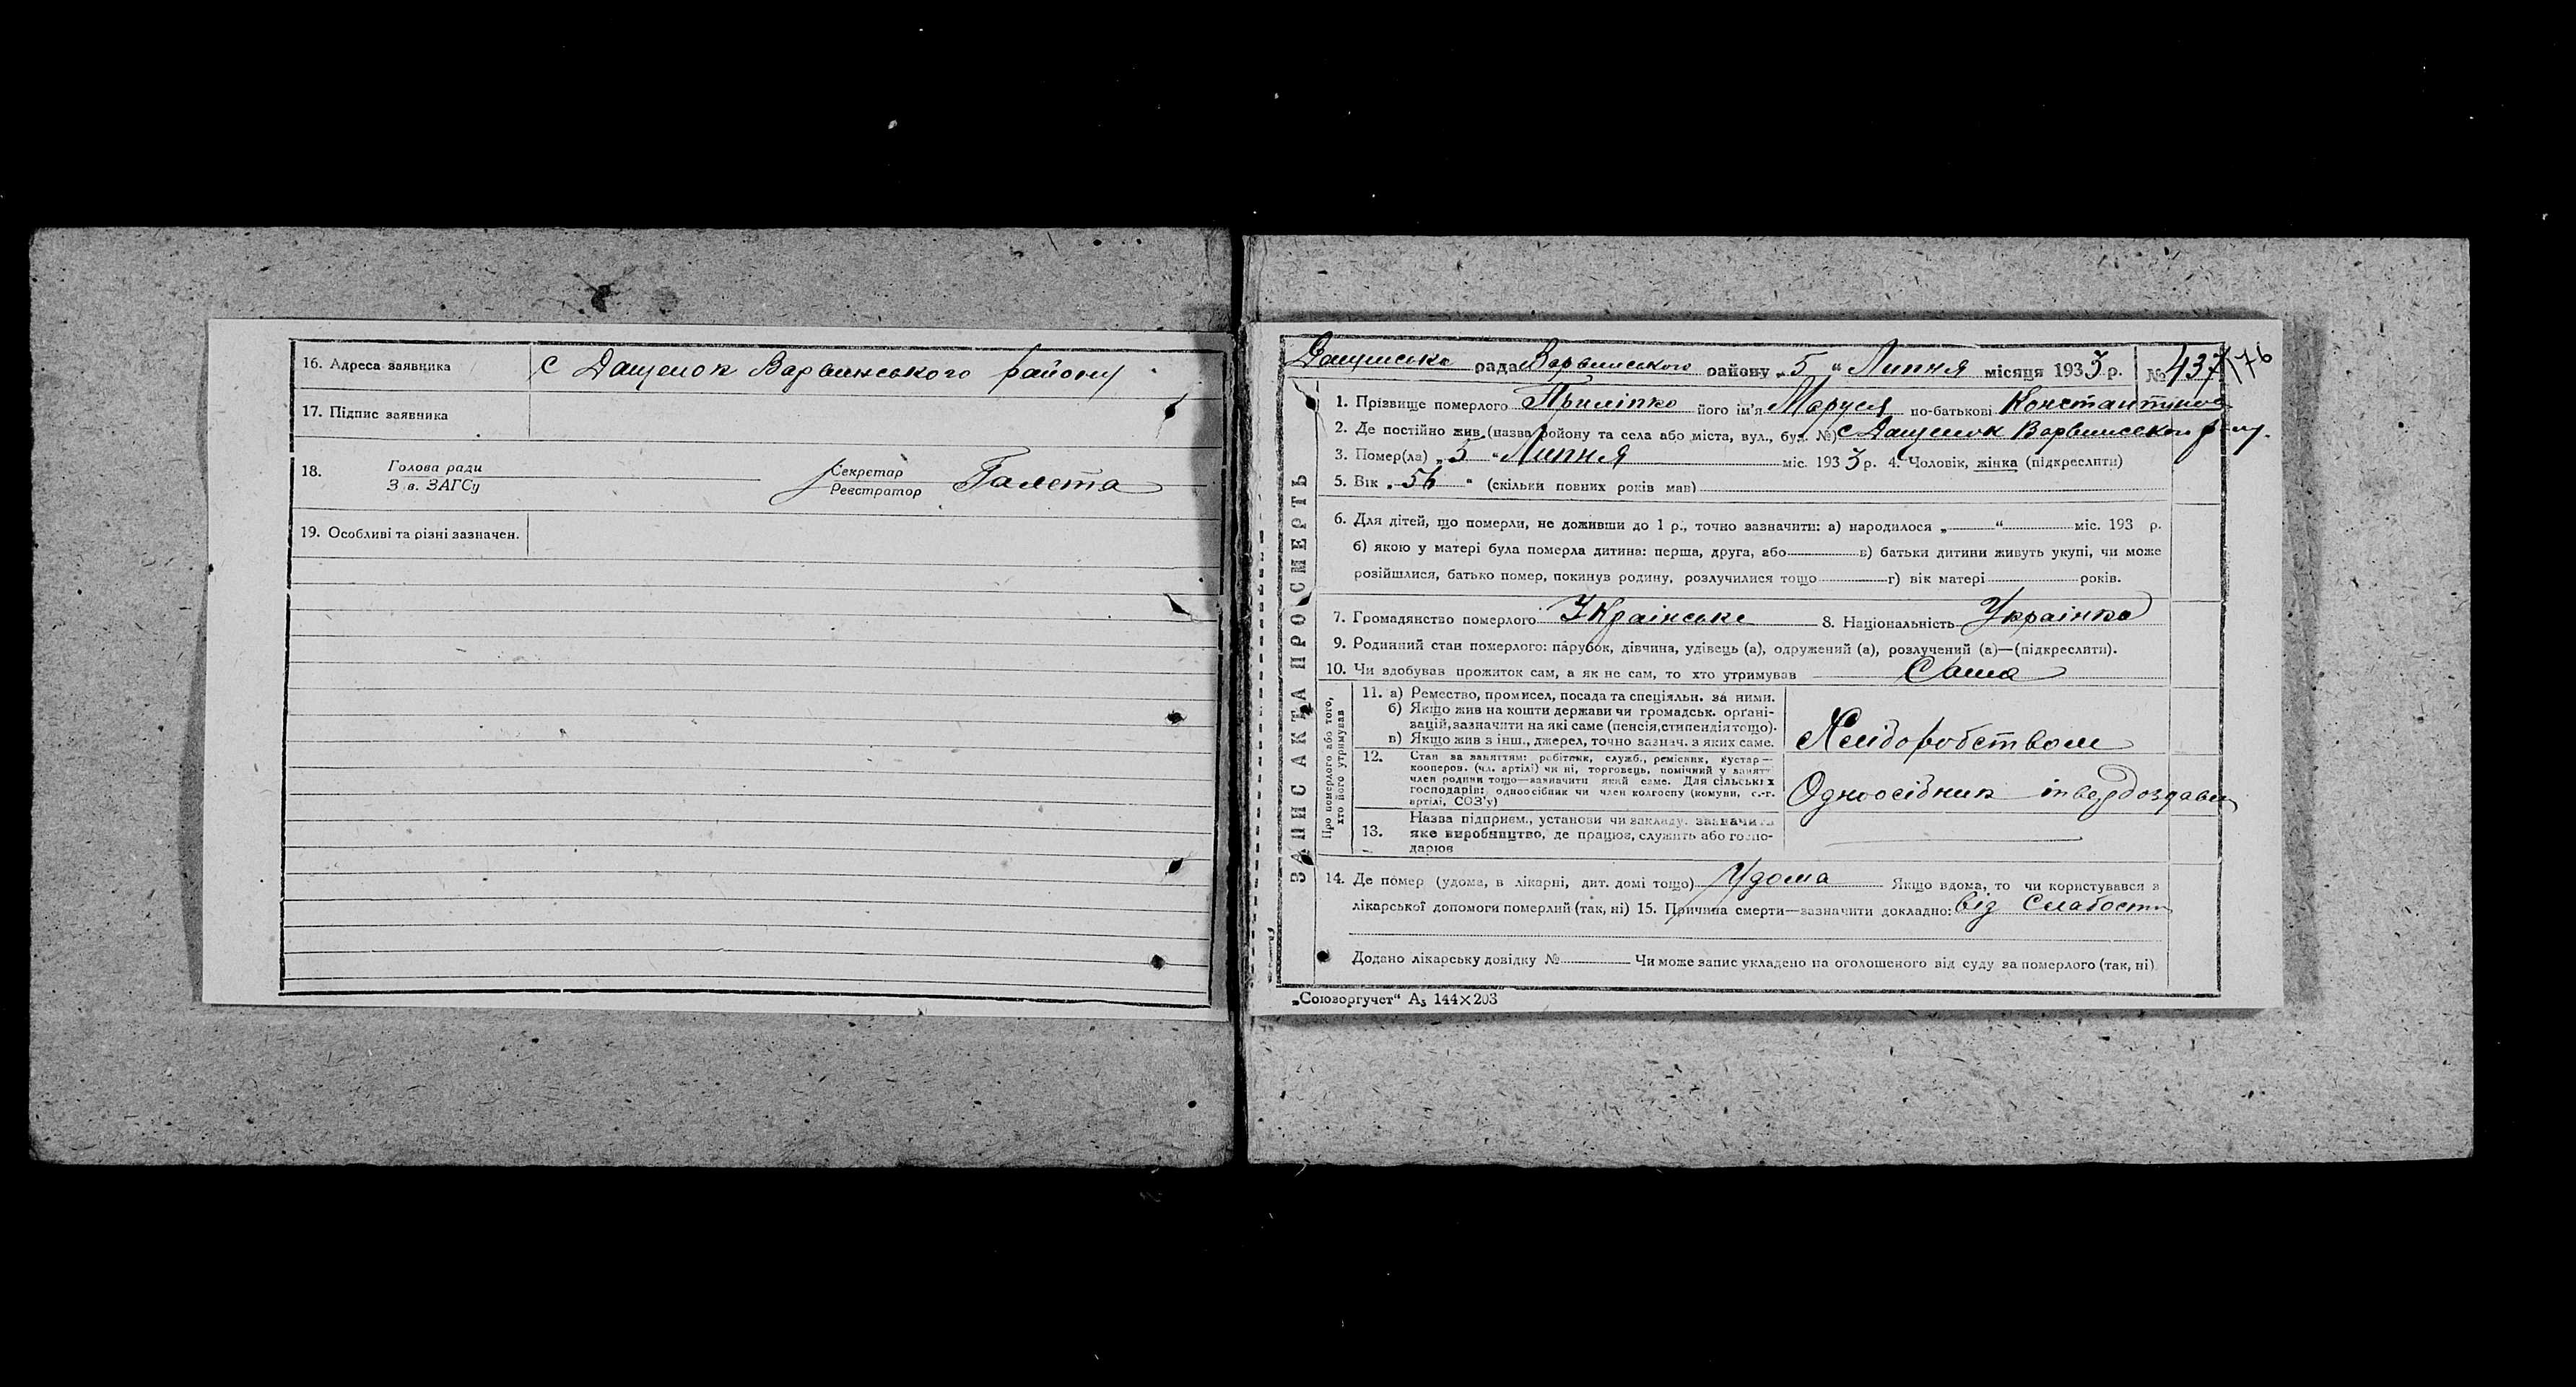 16. Адреса заявника с Дащенок Варвинського району
17. Підпис заявника
18. Голова ради
З в. ЗАГСу
Секретар
Реєстратор
Галета
19. Особливі та різні зазначен.
Дащинська рада Варвинського району „5" Липня місяця 1933 р. № 437
176
ЗАПИС АКТА ПРО СМЕРТЬ
1. Прізвище померлого Пиліпко його ім'я Маруся по-батькові Константинов
2. Де постійно жив (назва району та села або міста, вул., буд. №) с Дащенок Варвинськ
3. Помер(ла) „5" Липня міс. 1933 р. 4. Чоловік, жінка (підкреслити)
5. Вік „56" (скільки повних років мав)
6. Для дітей, що померли, не доживши до 1 р., точно зазначити: а) народилося „ " міс. 193 р.
б) якою у матері була померла дитина: перша, друга, або в) батьки дитини живуть укупі, чи може
розійшлися, батько помер, покинув родину, розлучилися тощо г) вік матері років.
7. Громадянство померлого Українське 8. Національність Українка
9. Родинний стан померлого: парубок, дівчина, удівець (а), одружений (а), розлучений (а)—(підкреслити).
10. Чи здобував прожиток сам, а як не сам, то хто утримував Сама
Про померлого або того,
хто його утримував
11. а) Ремество, промисел, посада та спеціяльн. за ними.
б) Якщо жив на кошти держави чи громадськ. орґані-
зацій, зазначити на які саме (пенсія, стипендія тощо).
в) Якщо жив з інш., джерел, точно зазнач. з яких саме.
Хлібороботвом
12. Стан за заняттям: робітник, служб., ремісник, кустар—
кооперов. (чл. артілі) чи ні, торговець, помічний у занятті
член родини тощо—зазначити який саме. Для сільських
господарів: одноосібник чи член колгоспу (комуни, с.-г.
артілі, СОЗ'у)
Одноосібник твердоздавец
13. Назва підприєм., установи чи закладу, зазначити
яке виробництво, де працює, служить або госпо-
дарює
14. Де помер (удома, в лікарні, дит. домі тощо) Удома Якщо вдома, то чи користувався з
лікарської допомоги померлий (так, ні) 15. Причина смерти—зазначити докладно: Від Слабости
Додано лікарську довідку № Чи може запис укладено на оголошеного від суду за померлого (так, ні)
„Союзоргучет" А₅ 144×203